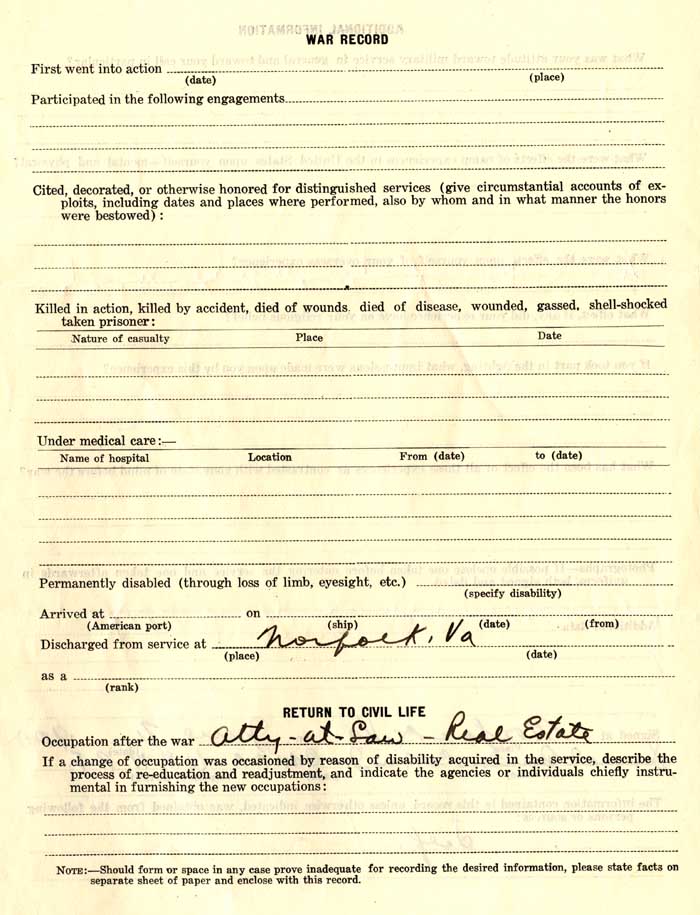 WAR RECORD
First went into action
(date) (place)
Participated in the following engagements
Cited, decorated, or otherwise honored for distinguished services (give circumstantial accounts of ex-
ploits, including dates and places where performed, also by whom and in what manner the honors
were bestowed) :
Killed in action, killed by accident, died of wounds. died of disease, wounded, gassed, shell-shocked
taken prisoner:
Nature of casualty Place Date
Under medical care:—
Name of hospital Location From (date) to (date)
Permanently disabled (through loss of limb, eyesight, etc.)
(specify disability)
Arrived at on
(American port) (ship) (date) (from)
Discharged from service at Norfolk, Va
(place) (date)
as a
(rank)
RETURN TO CIVIL LIFE
Occupation after the war Atty-at-Law - Real Estate
If a change of occupation was occasioned by reason of disability acquired in the service, describe the
process of re-education and readjustment, and indicate the agencies or individuals chiefly instru-
mental in furnishing the new occupations:
NOTE:—Should form or space in any case prove inadequate for recording the desired information, please state facts on
separate sheet of paper and enclose with this record.